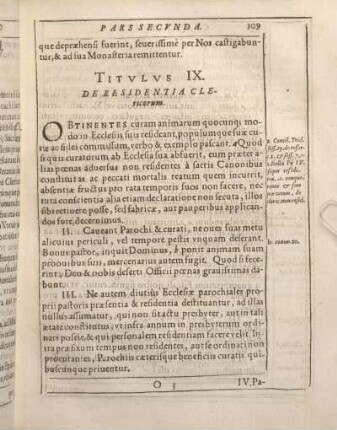 PARS SECVNDA. 109
que depræhensi fuerint, seuerissimè per Nos castigabun-
tur, & ad sua Monasteria remittentur.
TITVLVS IX.
DE RESIDENTIA CLE-
ricorum.
OBTINENTES curam animarum quocunq; mo-
do in Ecclesiis, suis resideant, populumque suæ cu-
ræ ac fidei commissum, verbo & exemplo pascant. Quod
si quis curatorum ab Ecclesia sua abfuerit, eum præter a-
lias pœnas aduersus non residentes à sacris Canonibus
constitutas ac peccati mortalis reatum quem incurrit,
absentiæ fructus pro rata temporis suos non facere, nec
tuta conscientia alia etiam declaratione non secuta, illos
sibi retinere posse, sed fabricæ, aut pauperibus applican-
dos fore, decernimus.
II. Caueant Parochi & curati, ne oues suas metu
alicuius periculi, vel tempore pestis vnquam deserant.
Bonus Pastor, inquit Dominus, b ponit animam suam
pro ouibus suis, mercenarius autem fugit. Quod si fece-
rint, Deo & nobis deserti Officii pœnas grauissimas da-
bunt.
III. Ne autem diutius Ecclesiæ parochiales pro-
prii pastoris præsentia & residentia destituantur, ad illas
nullus assumatur, qui non sit actu presbyter, aut in tali
ætate constitutus, vt infra annum in presbyterum ordi-
nari possit, & qui personalem residentiam facere velit. In-
tra præfixum tempus non residentes, aut se ordinari non
procurantes, Parochiis cæterisque beneficiis curatis qui-
buscunque priuentur.
O 3 IV. Pa-
a Concil. Trid.
b Ioann. 10.